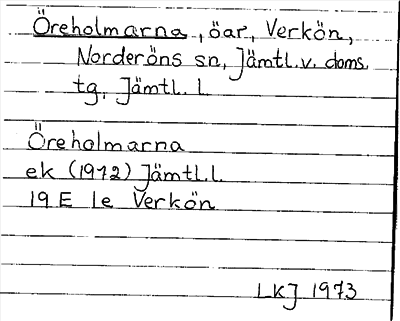 Öreholmarna, öar, Verkön,
Norderöns sn, Jämtl.v. doms.
tg, Jämtl. l.
Öreholmarna
ek (1912) Jämtl.l.
19 E 1e Verkön
LKJ 1973